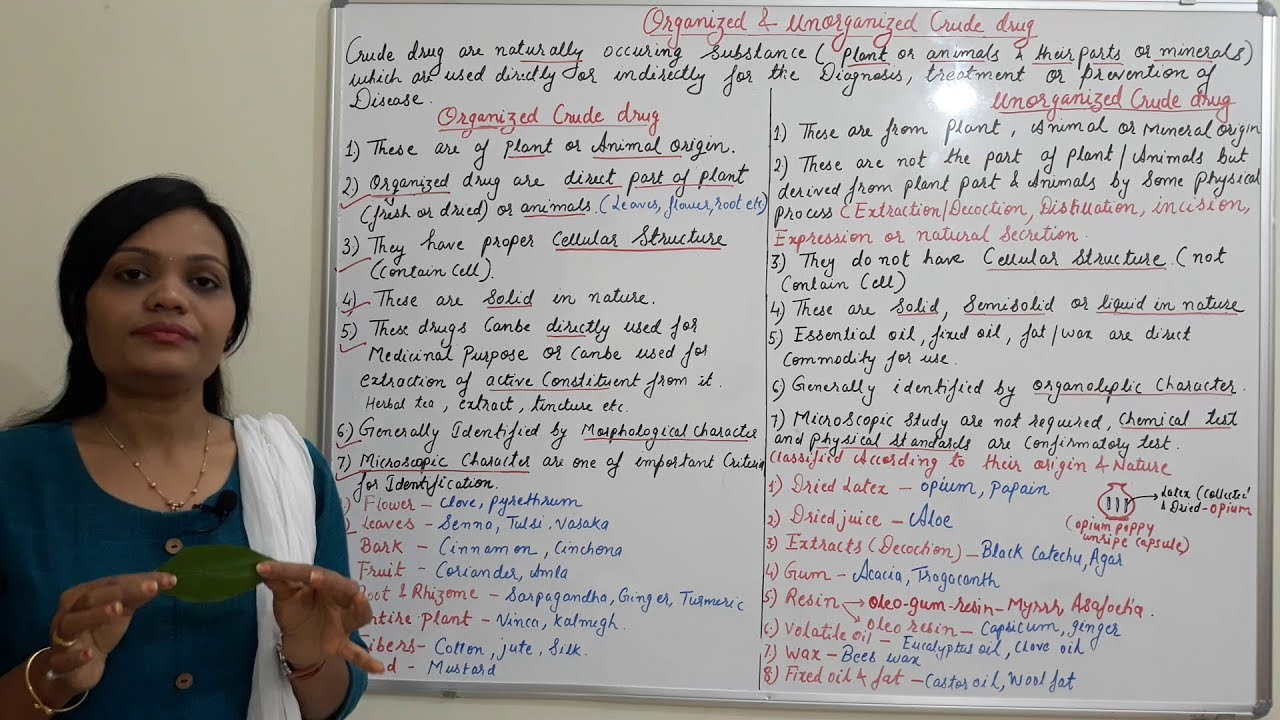 Organized & Unorganized Crude drug
Crude drug are naturally occuring Substance (plant or animals & their parts or minerals)
which are used directly or indirectly for the Diagnosis, treatment or prevention of
Disease.
Organized Crude drug
1) These are of plant or Animal origin.
2) Organized drug are direct part of plant
(fresh or dried) or animals. (Leaves, flower, root etc)
3) They have proper Cellular Structure
(Contain Cell).
4) These are Solid in nature.
5) These drugs Canbe directly used for
Medicinal Purpose or Canbe used for
extraction of active Constituent from it.
Herbal tea, extract, tincture etc.
6) Generally Identified by Morphological character
7) Microscopic Character are one of important Criteria
for Identification.
) Flower - Clove, Pyrethrum
) Leaves - Senna, Tulsi, Vasaka
Bark - Cinnamon, Cinchona
Fruit - Coriander, Amla
Root & Rhizome - Sarpagandha, Ginger, Turmeric
Entire Plant - Vinca, Kalmegh.
Fibers - Cotton, jute, Silk.
- Mustard
Unorganized Crude drug
1) These are from plant, Animal or Mineral origin
2) These are not the part of plant/Animals but
derived from plant part & Animals by Some Physical
process (Extraction/Decoction, Distillation, incision,
Expression or natural Secretion.
3) They do not have Cellular Structure (not
Contain Cell)
4) These are Solid, Semisolid or liquid in nature
5) Essential oil, fixed oil, fat/wax are direct
Commodity for use.
6) Generally identified by organoleptic Character.
7) Microscopic Study are not required, Chemical test
and Physical Standards are Confirmatory test.
Classified According to their origin & Nature
1) Dried Latex - Opium, Papain
2) Dried juice - Aloe
3) Extracts (Decoction) - Black Catechu, Agar
4) Gum - Acacia, Tragacanth
5) Resin → Oleo-gum-resin - Myrrh, Asafoetida.
→ Oleo resin - Capsicum, ginger
6) Volatile oil - Eucalyptus oil, Clove oil
7) Wax - Bees wax
8) Fixed oil & fat - Castor oil, Wool fat
Latex (Collected
& Dried - opium
(opium poppy
unripe capsule)